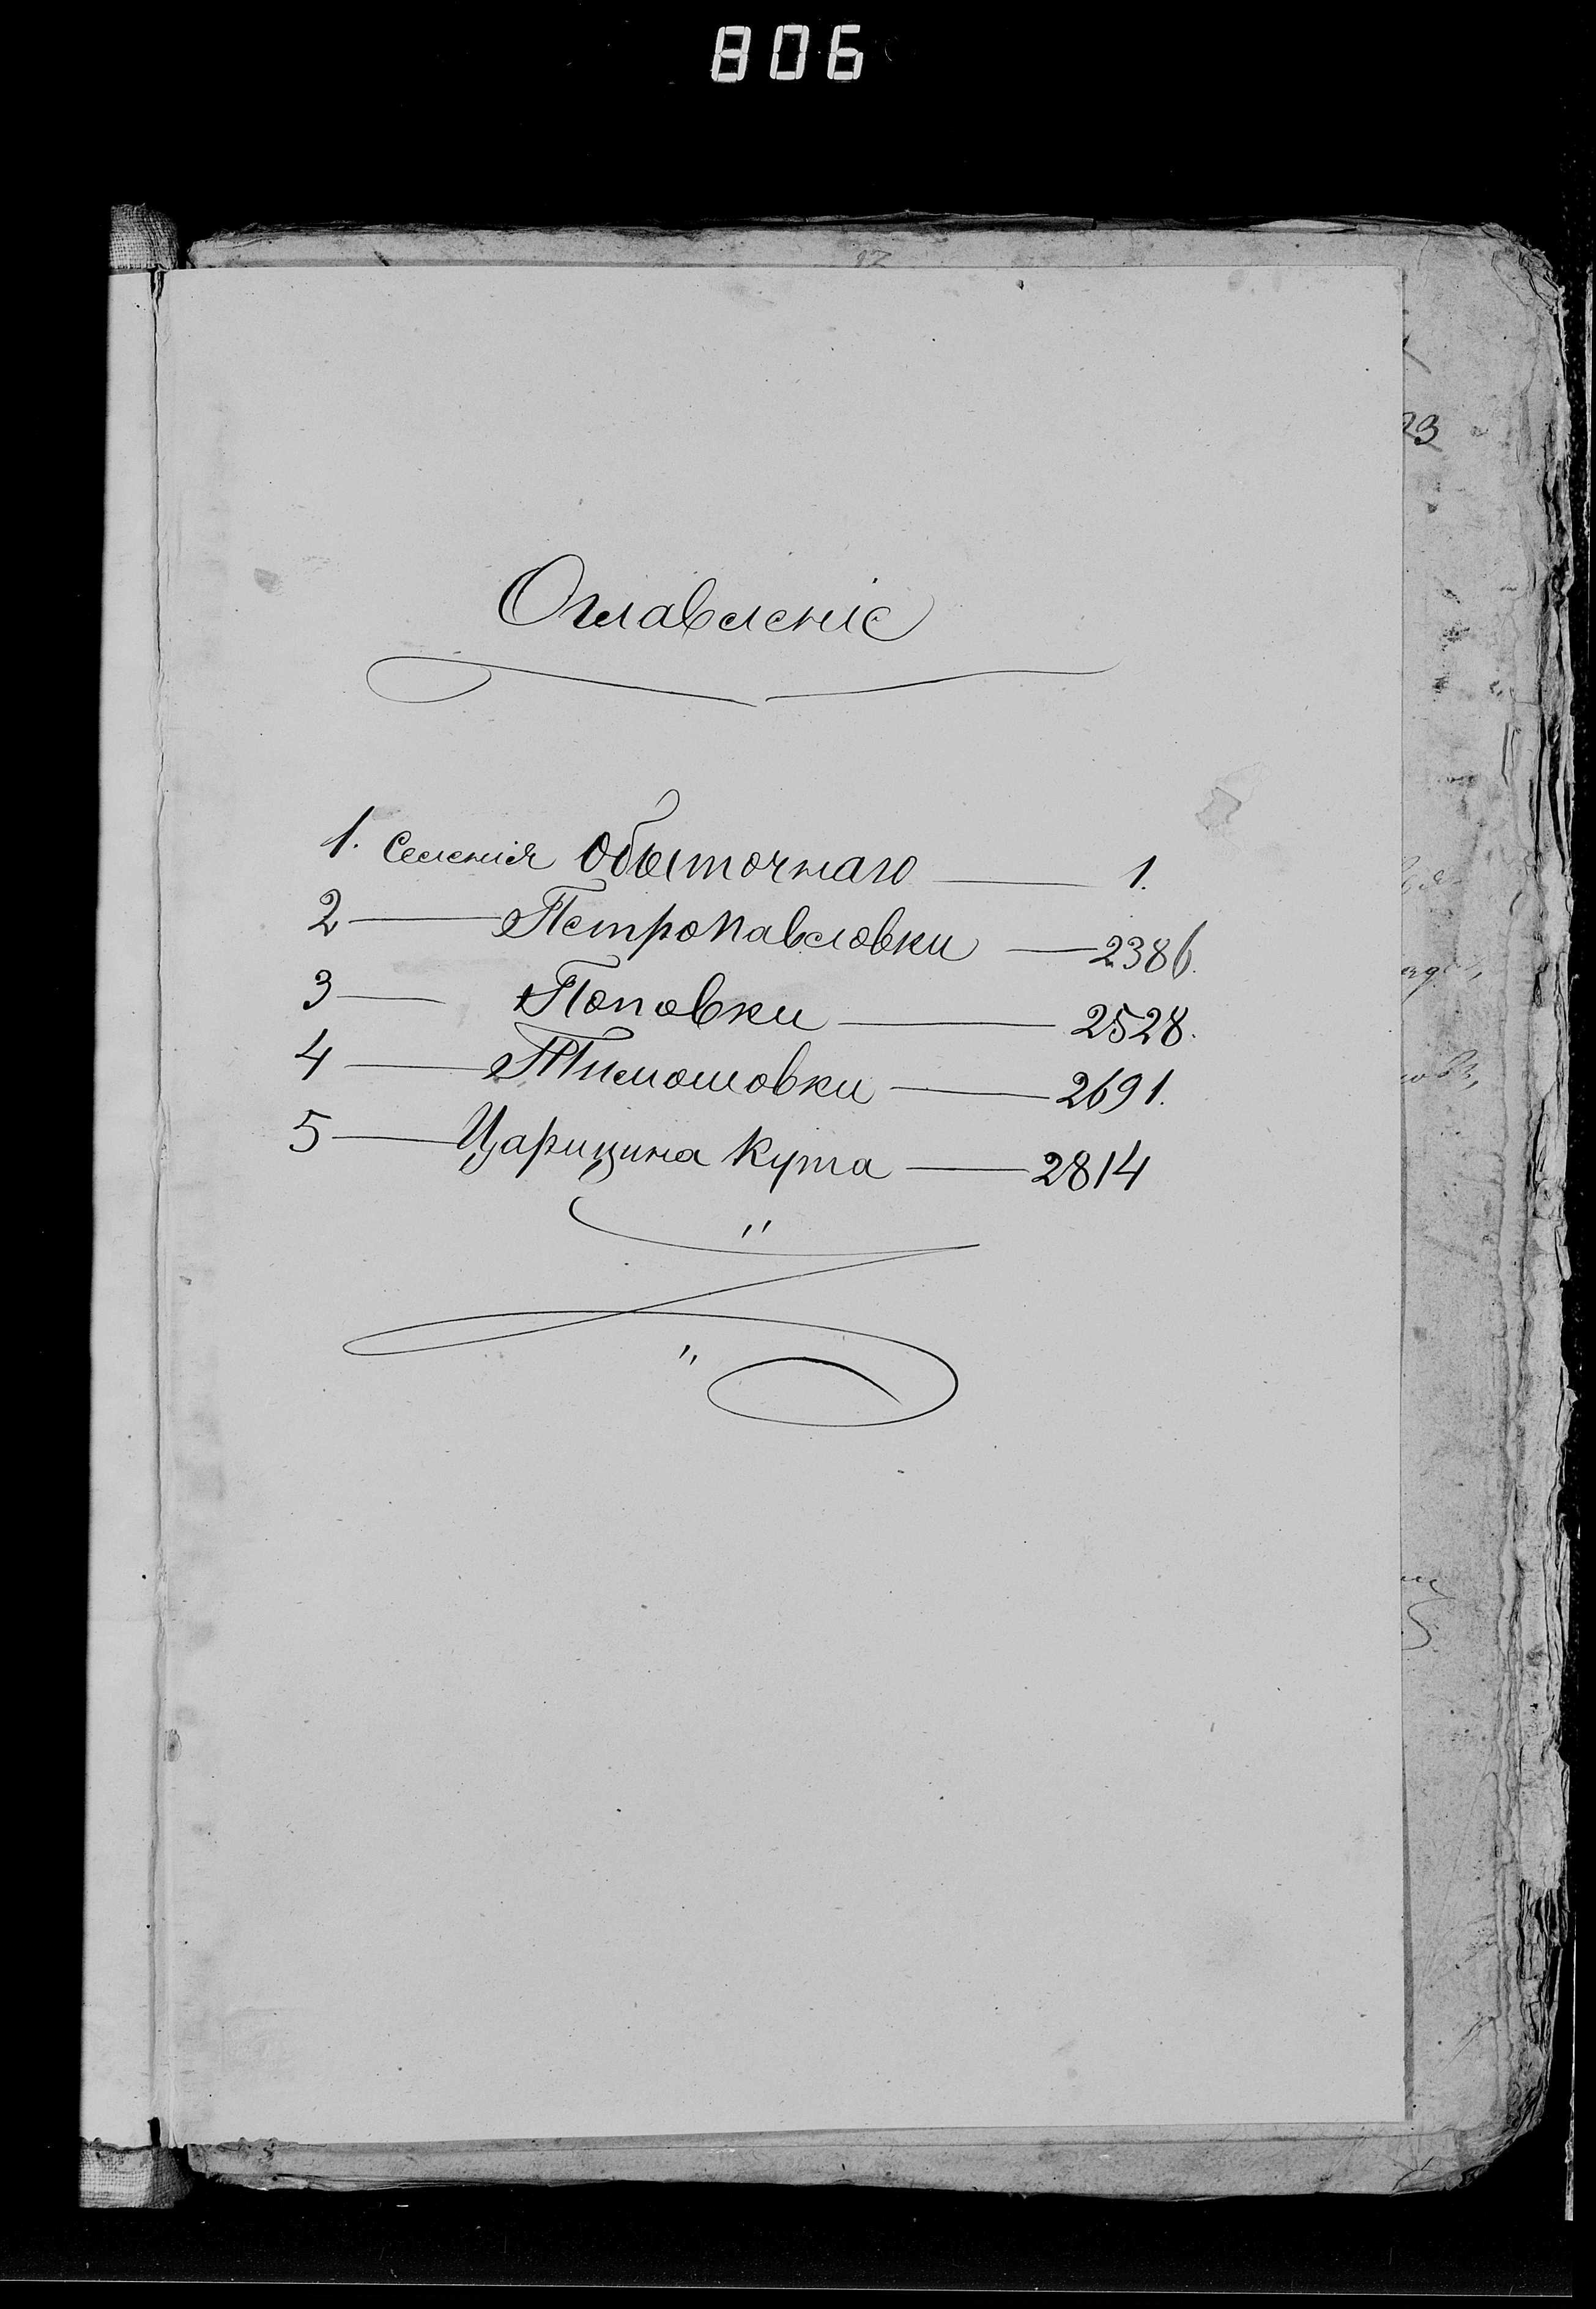 806
Оглавленіе
1. Селенія Обыточнаго — 1.
2 — Петропавловки — 2386.
3 — Поповки — 2528.
4 — Тимошовки — 2691.
5 — Царицина Кута — 2814
23